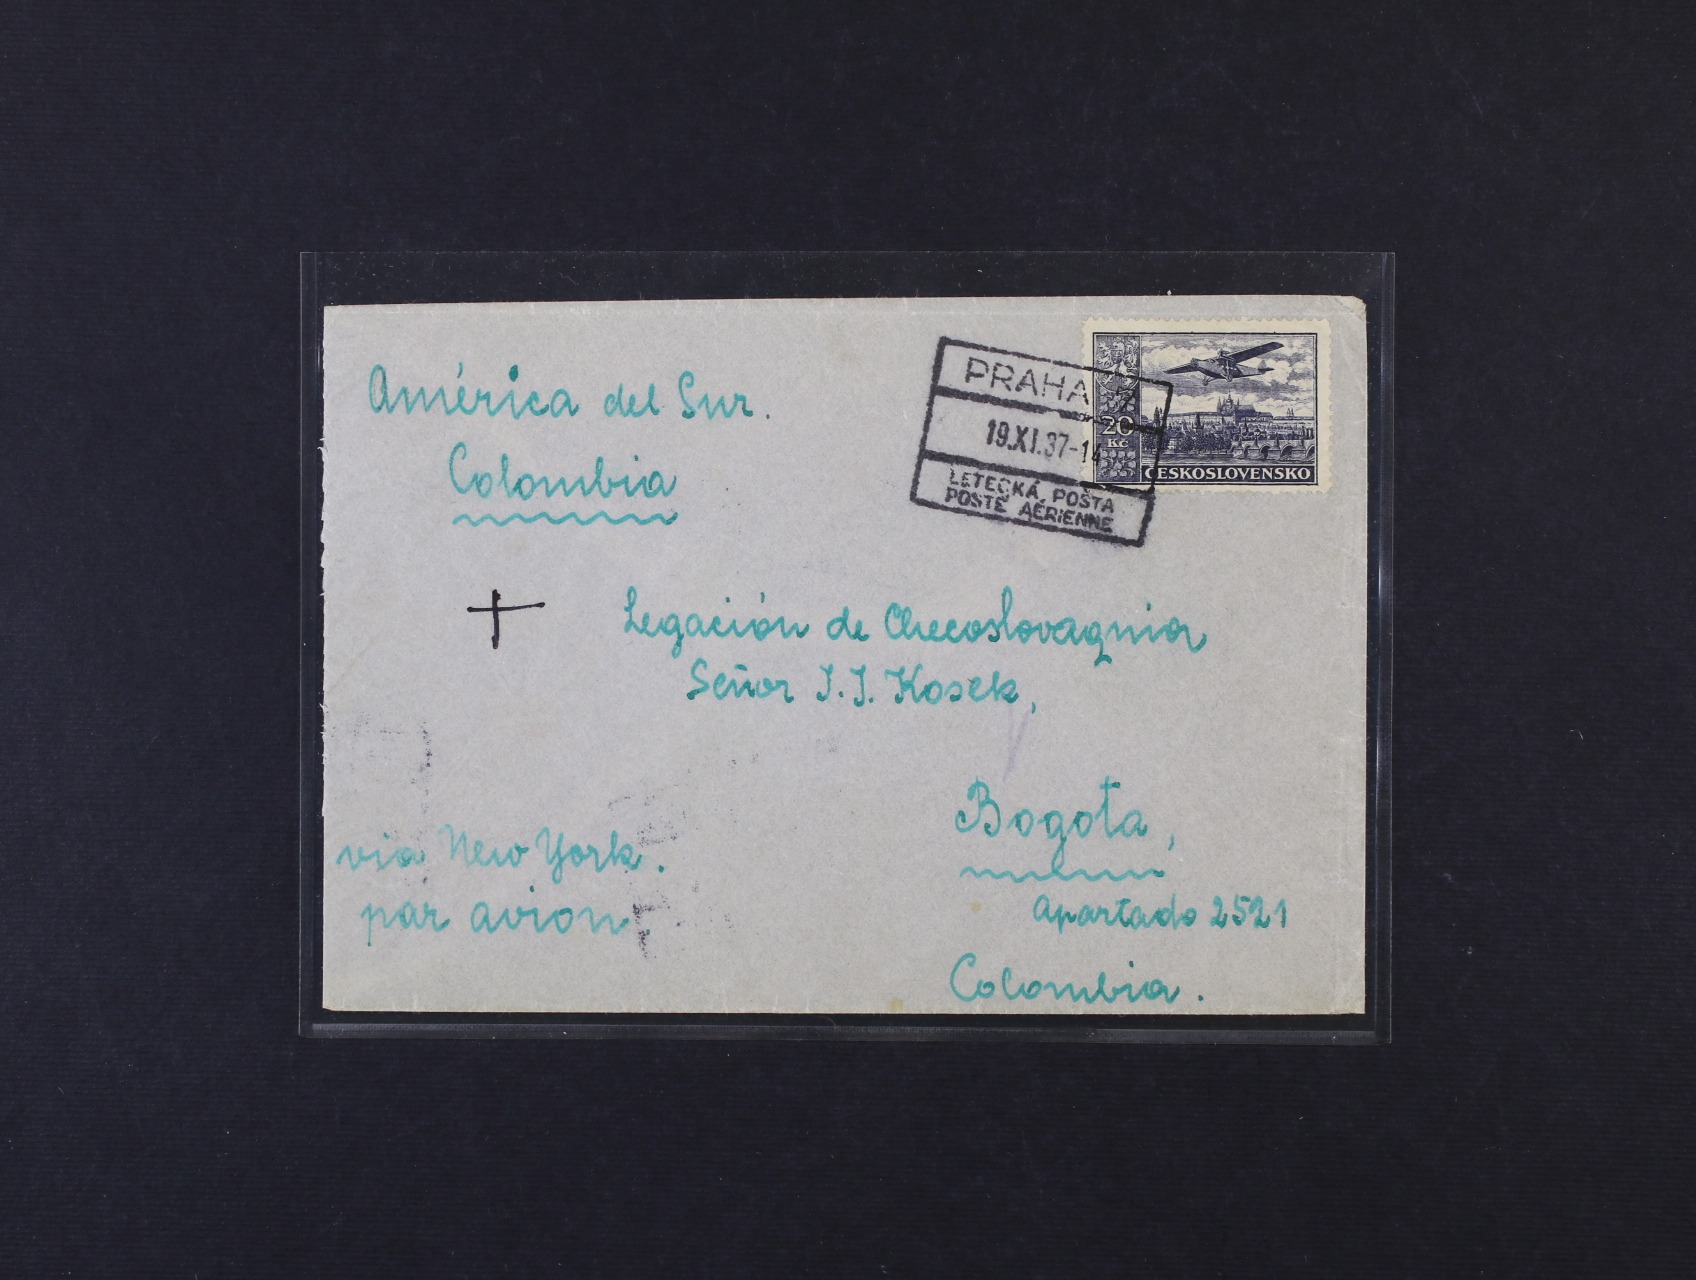 América del Sur.
Colombia
PRAHA
19.XI.37-14
LETECKÁ POŠTA
POSTE AÉRIENNE
20
Kč
ČESKOSLOVENSKO
Legación de Checoslovaquia
Señor J. J. Kosek,
Bogota,
Apartado 2521
Colombia.
via New York.
par avion.